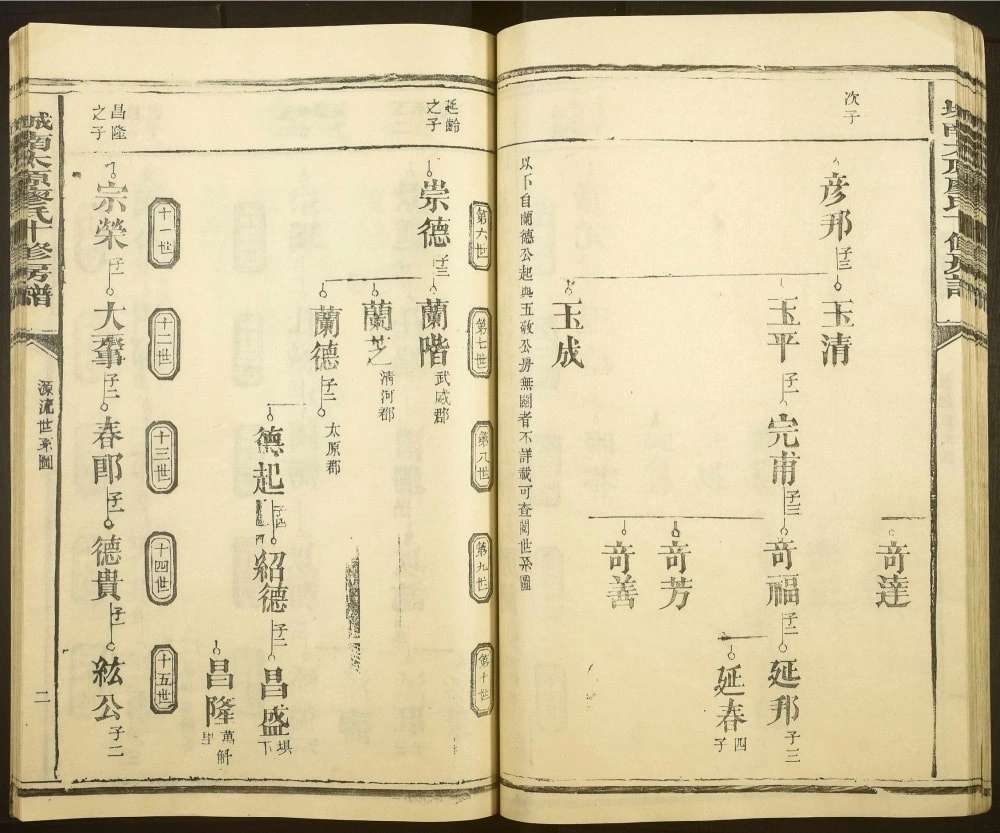 次子
彥邦 子三
玉清
玉平 子一
完甫 子三
奇達
奇福 子二
延邦 子三
延春 四子
奇芳
奇善
玉成
以下自蘭德公起與五敬公房無關者不詳載可查閱世系圖
第六世
第七世
第八世
第九世
第十世
延齡之子
崇德 子三
蘭階 武威郡
蘭芝 清河郡
蘭德 子二 太原郡
德起
紹德 子二
昌盛
昌隆 萬斛
十一世
十二世
十三世
十四世
十五世
昌隆之子
宗榮 子一
大羣 子一
春郎 子一
德貴 子一
紘公 子二
城南太原廖氏十修房譜
源流世系圖
二